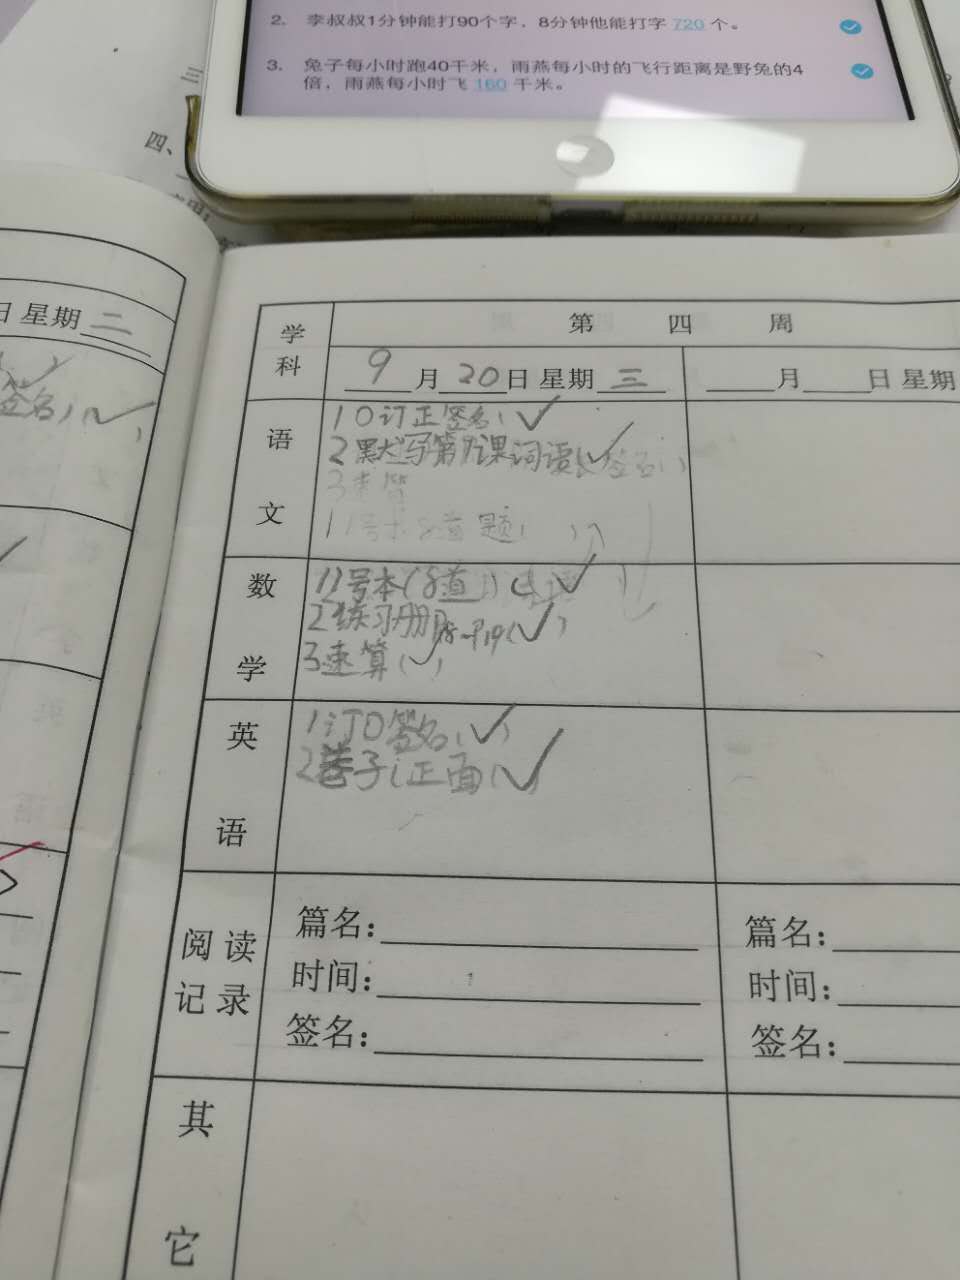 2. 李叔叔1分钟能打90个字，8分钟他能打字 720 个。
3. 兔子每小时跑40千米，雨燕每小时的飞行距离是野兔的4
倍，雨燕每小时飞 160 千米。
三
四、
日 星期 二
签名
第 四 周
学科
9 月 20 日 星期 三
月 日 星期
语文
1 订正签名
2 默写第7课词语
3 速算
数学
1 1号本(8道)
2 练习册P18-P19
3 速算
英语
1 订 签名
2 卷子(正面
阅读记录
篇名：
时间：
签名：
篇名：
时间：
签名：
其它